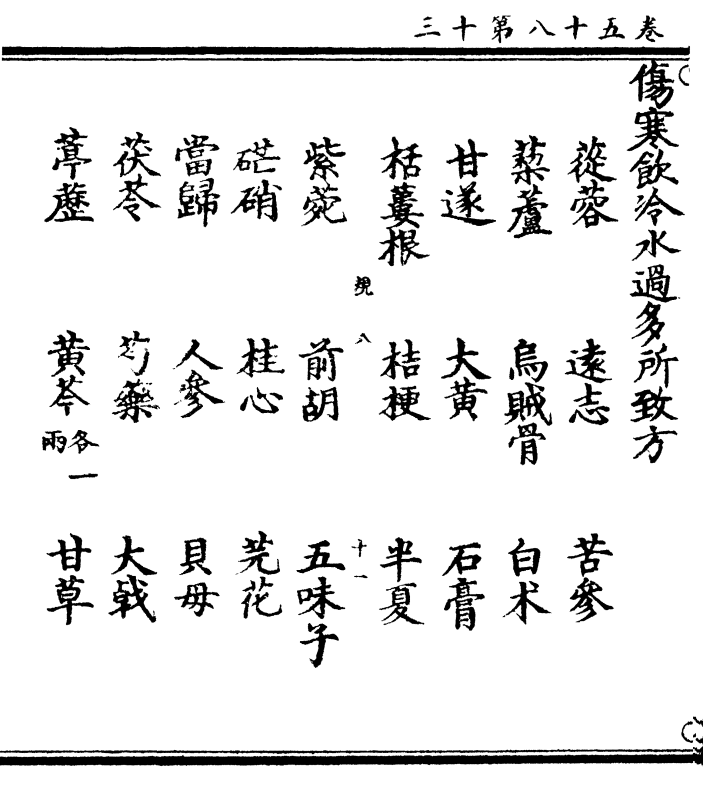 卷五十八第十三
傷寒飲冷水過多所致方
蓯蓉 遠志 苦參
藜蘆 烏賊骨 白术
甘遂 大黃 石膏
栝蔞根 桔梗 半夏
八 十一
紫菀 前胡 五味子
硭硝 桂心 芫花
當歸 人參 貝母
茯苓 芍藥 大戟
葶藶 黃芩各一兩 甘草